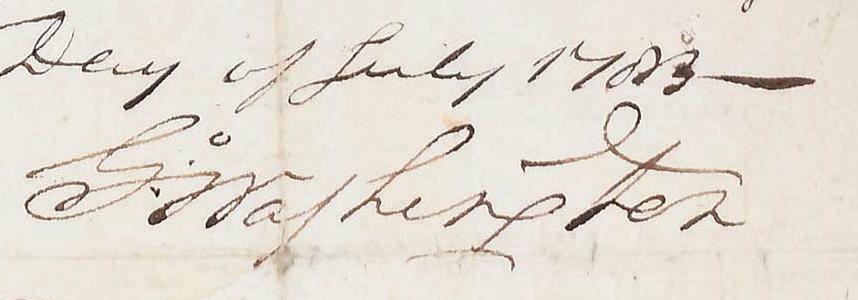 Day of July 1783
G:Washington